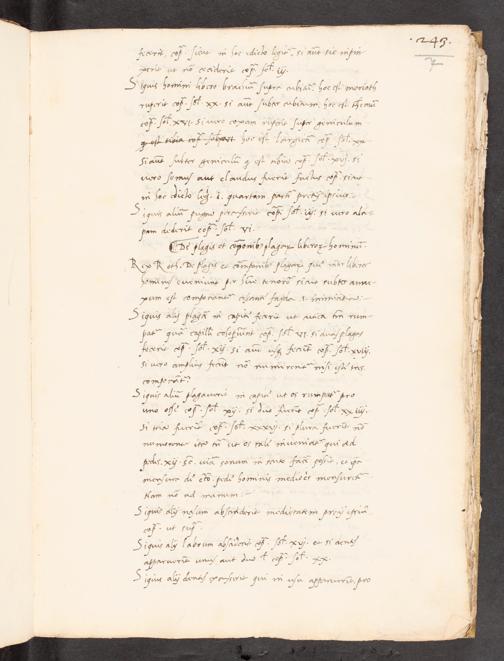 .245.
7
fecerit, cop̄. sicut in hoc edicto legitur, si aūt sic
ut nō ceciderit cop̄. sol. iij.
Siquis homini libero brachium supra cubitum, hoc est
ruperit cop̄. sol. xx. si aūt subter cubitum, hoc est
cop̄. sol. xvi. si vero coxam ruperit super geniculum
hoc est cop̄. sol. xx
Siaut subter geniculum q̄ est tibia cop̄. sol. xvi. si
vero aut claudus fuerit factus cop̄. sicut
in hoc edicto leg. i. quartam partē pretij ipsius.
Siquis aliū pugno percusserit cop̄. sol. iij. si vero ala-
pam dederit cop̄. sol. vi.
De plagis et cōponib. plagar. liberor. hominum.
Rex Roth. De plagis et cōponib. plagar. que inter liberos
homines eveniunt per hunc tenorē sicut subter
est componatur cessante faida i. inimicitia.
Siquis alij plagā in caput fecerit ut cutica tm̄ rum-
patur quā capilli cop̄. sol. vi. si duas plagas
fecerit cop̄. sol. xij. si aūt usq. fecerit cop̄. sol. xviij.
si vero amplius fecerit nō numerentur nisi istas tres
componat.
Siquis aliū plagaverit in caput ut os rumpatur pro
uno osse cop̄. sol. xij. si duo fuerint cop̄. sol. xxiiij.
si tria fuerint cop̄. sol. xxxvj. si plura fuerint nō
numerentur ita tn̄ ut os tale inveniatur qui ad
pedes xij. sc. viam sonum in scuto facere possit, et ipsa
mensura de certo pede hominis mediocris mensuretur
nam nō ad manum.
Siquis alij nasum absciderit medietatem pretij ipsius
cop̄. ut supra.
Siquis alij labrum absciderit cop̄. sol. xvj. et si dentes
apparuerint unus aut duo vel cop̄. sol. xx.
Siquis alij dentes excusserit qui in risu apparuerint, pro